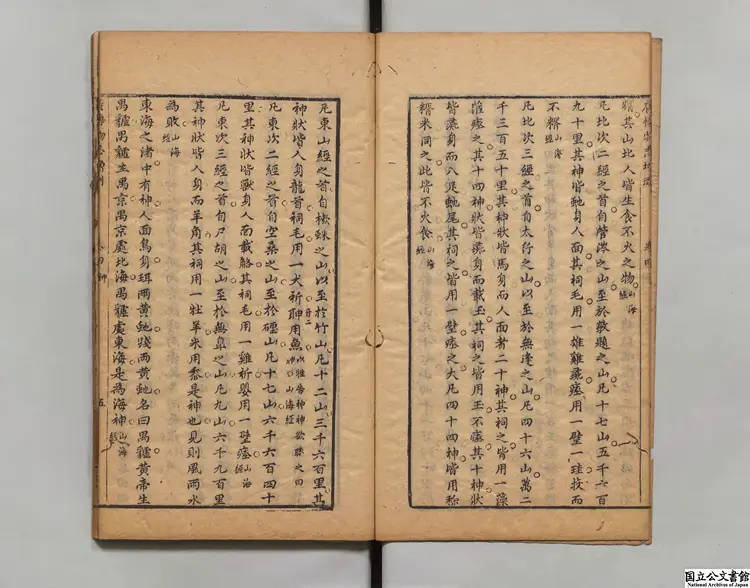 糈其山北人皆生食不火之物山海經
凡北次二經之首自管涔之山至於敦題之山凡十七山五千六百
九十里其神皆虵身人面其祠毛用一雄雞彘瘞用一璧一珪投而
不糈山海經
凡北次三經之首自太行之山以至於無逢之山凡四十六山萬二
千三百五十里其神狀皆馬身而人面者二十神其祠之皆用一藻
茝瘞之其十四神狀皆彘身而載玉其祠之皆用玉不瘞其十神狀
皆彘身而八足虵尾其祠之皆用一璧瘞之大凡四十四神皆用稌
糈米祠之此皆不火食山海經
凡東山經之首自樕䖣之山以至於竹山凡十二山三千六百里其
神狀皆人身龍首祠毛用一犬祈聊用魚
凡東次二經之首自空桑之山至於䃌山凡十七山六千六百四十
里其神狀皆獸身人面載觡其祠毛用一雞祈嬰用一璧瘞山海經
凡東次三經之首自尸胡之山至於無皋之山凡九山六千九百里
其神狀皆人身而羊角其祠用一牡羊米用黍是神也見則風雨水
為敗山海經
東海之渚中有神人面鳥身珥兩黃虵踐兩黃虵名曰禺䝞黃帝生
禺䝞禺䝞生禺京禺京處北海禺䝞處東海是為海神山海經
五
国立公文書館
National Archives of Japan